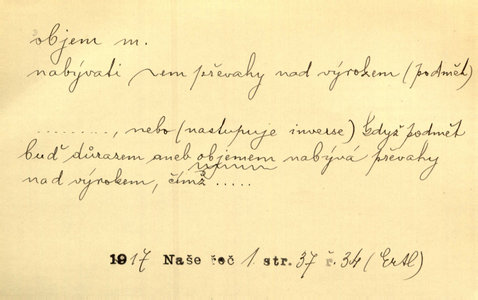 objem m.
nabývati ~em převahy nad výrokem (podmět)
........, nebo (nastupuje inverse) když podmět
buď důrazem aneb objemem nabývá převahy
nad výrokem, čímž .....
1917 Naše řeč 1. str. 37 ř. 34 (Ertl)